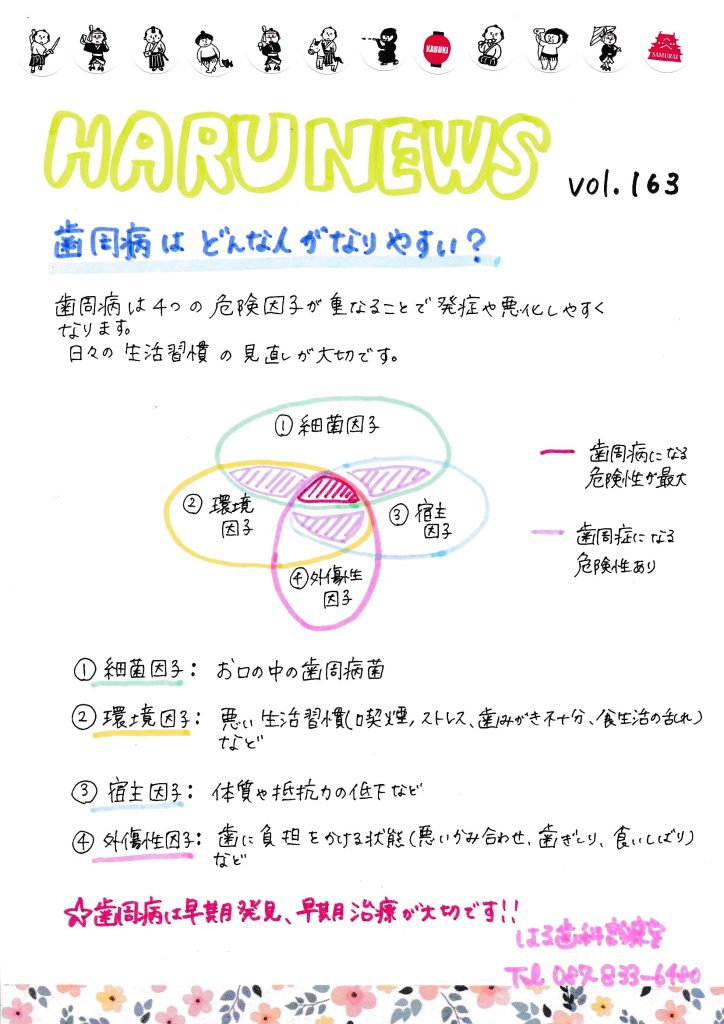 KABUKI
SAMURAI
HARU NEWS
vol.163
歯周病は どんな人がなりやすい?
歯周病は4つの危険因子が重なることで発症や悪化しやすく
なります。
日々の生活習慣の見直しが大切です。
①細菌因子
②環境
因子
③宿主
因子
④外傷性
因子
歯周病になる
危険性が最大
歯周症になる
危険性あり
①細菌因子: お口の中の歯周病菌
②環境因子: 悪い生活習慣(喫煙,ストレス、歯みがき不十分、食生活の乱れ)
など
③宿主因子: 体質や抵抗力の低下など
④外傷性因子: 歯に負担をかける状態(悪いかみ合わせ、歯ぎしり、食いしばり)
など
☆歯周病は早期発見、早期治療が大切です!!
はる歯科診療室
Tel 087-833-6480